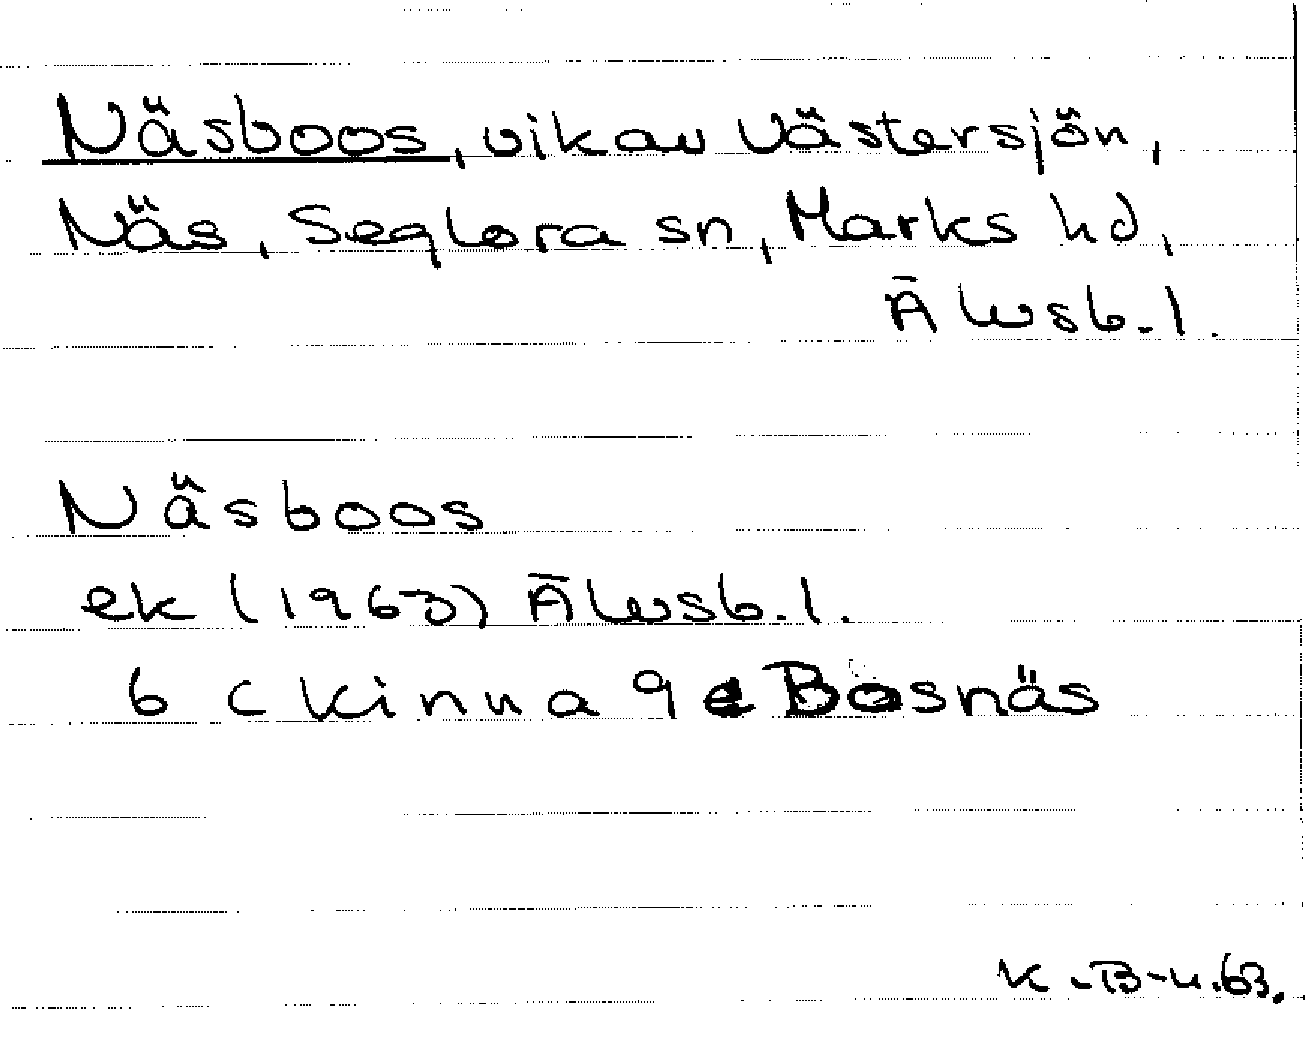 Näsboos, vik av Västersjön,
Näs, Seglora sn, Marks hd,
Älvsb. l.
Näsboos
ek (1963) Älvsb. l.
6 C Kinna 9 e Bosnäs
K. B-u. 63.